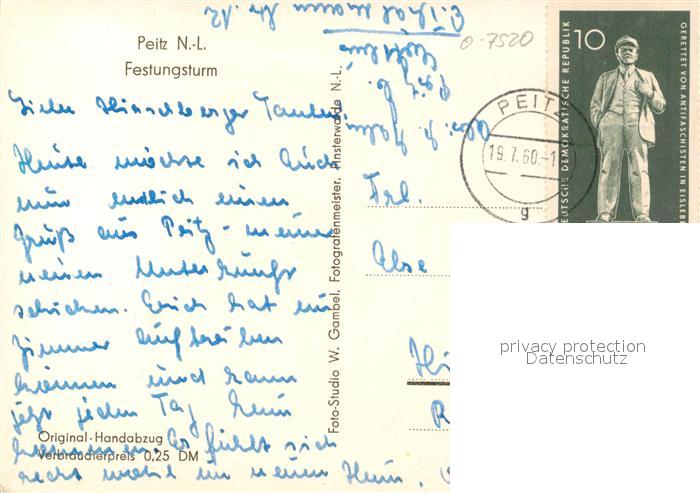 Peitz N.-L.
Festungsturm
Liebe Hirschberger Tanten
Heute möchte ich Euch
nun endlich einen
Gruß aus Peitz - meiner
neuen Unterkunft
schicken. Erich hat ein
Zimmer auftreiben
können und kann
jetzt jeden Tag heim
kommen. Er fühlt sich
recht wohl im neuen Heim,
Original-Handabzug
Verbraucherpreis 0,25 DM
Foto-Studio W. Gambel, Fotografenmeister, Finsterwalde N.-L.
0-7520
PEITZ
19.7.60.-1
g
10
DEUTSCHE DEMOKRATISCHE REPUBLIK
GERETTET VON ANTIFASCHISTEN IN EISLEB
Frl.
Else
Hi
R
privacy protection
Datenschutz